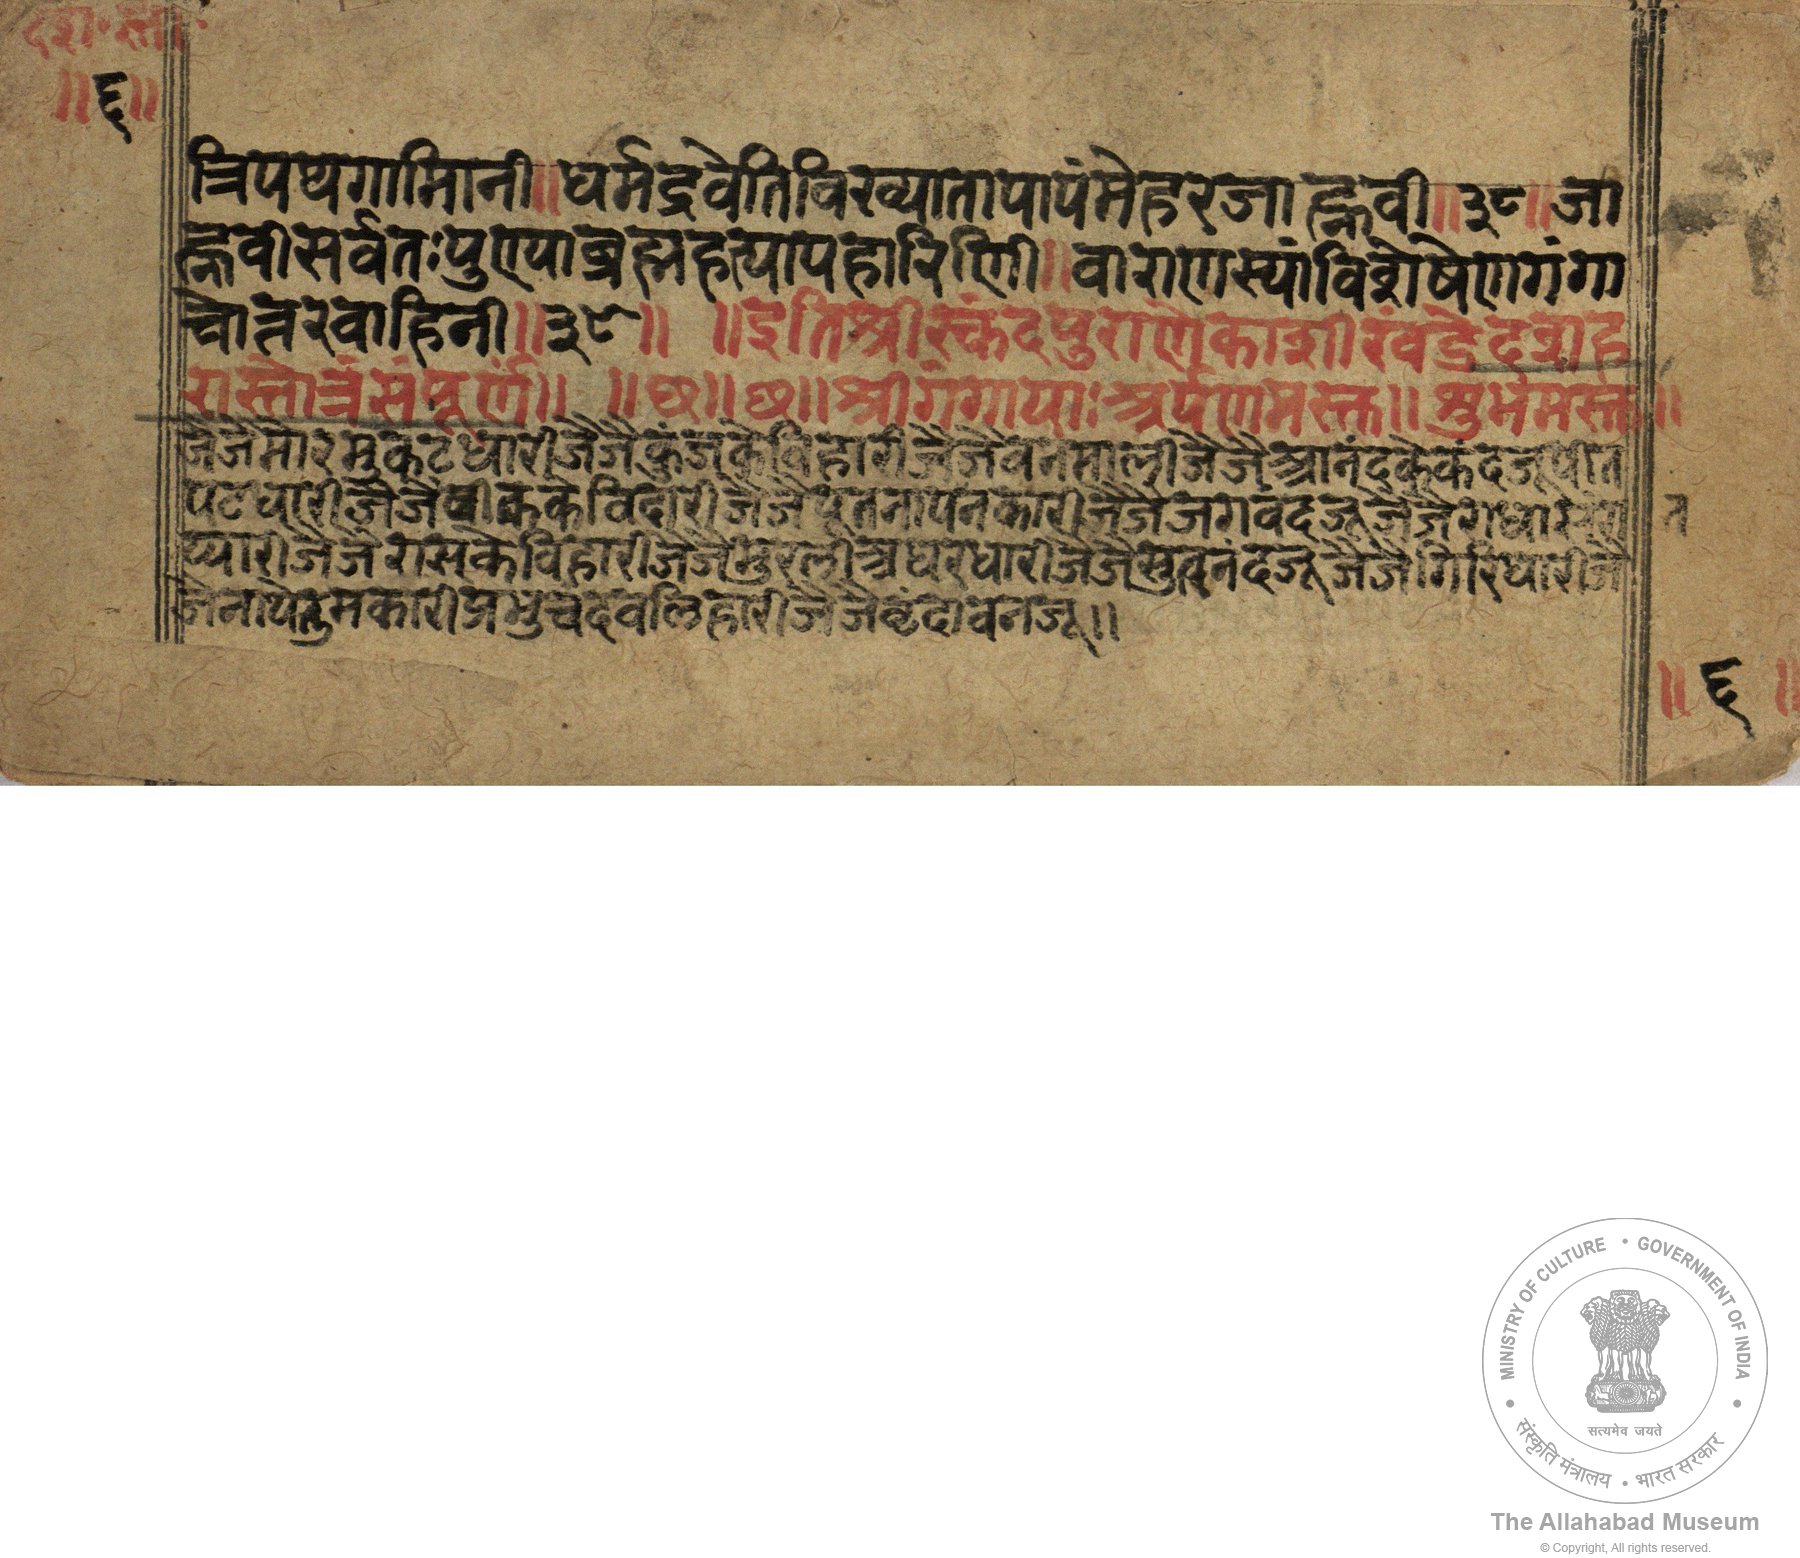 दश॰स्तो॰
॥६॥
त्रिपथगामिनी॥धर्मद्रवेतिविख्यातापापंमेहरजाह्नवी॥३८॥जा
ह्नवीसर्वतःपुण्याब्रह्महत्यापहारिणी॥वाराणस्यांविशेषेणगंगा
चोत्तरवाहिनी॥३९॥ ॥इतिश्रीस्कंदपुराणेकाशीखंडेदशह
रास्तोत्रंसंपूर्णं॥ ॥छ॥छ॥श्रीगंगायाःअर्पणमस्तु॥शुभमस्तु॥
जैजैमोरमुकटधारीजैजैकुंजकेविहारीजैजैवनमालीजैजैआनंदकेकंदजूपीत
पटधारीजैजै विदारीजैजैपूतनापनकारीजैजैजगवंदजूजैजै
प्यारीजैजैरासकेविहारीजैजैमुरलीअधरधारीजैजै नंदजूजैजैगिरिधारीजै
जैनाथ प्रभुचंदवलिहारीजैजैवृंदावनजू॥
॥६॥
MINISTRY OF CULTURE • GOVERNMENT OF INDIA
सत्यमेव जयते
संस्कृति मंत्रालय • भारत सरकार
The Allahabad Museum
© Copyright, All rights reserved.